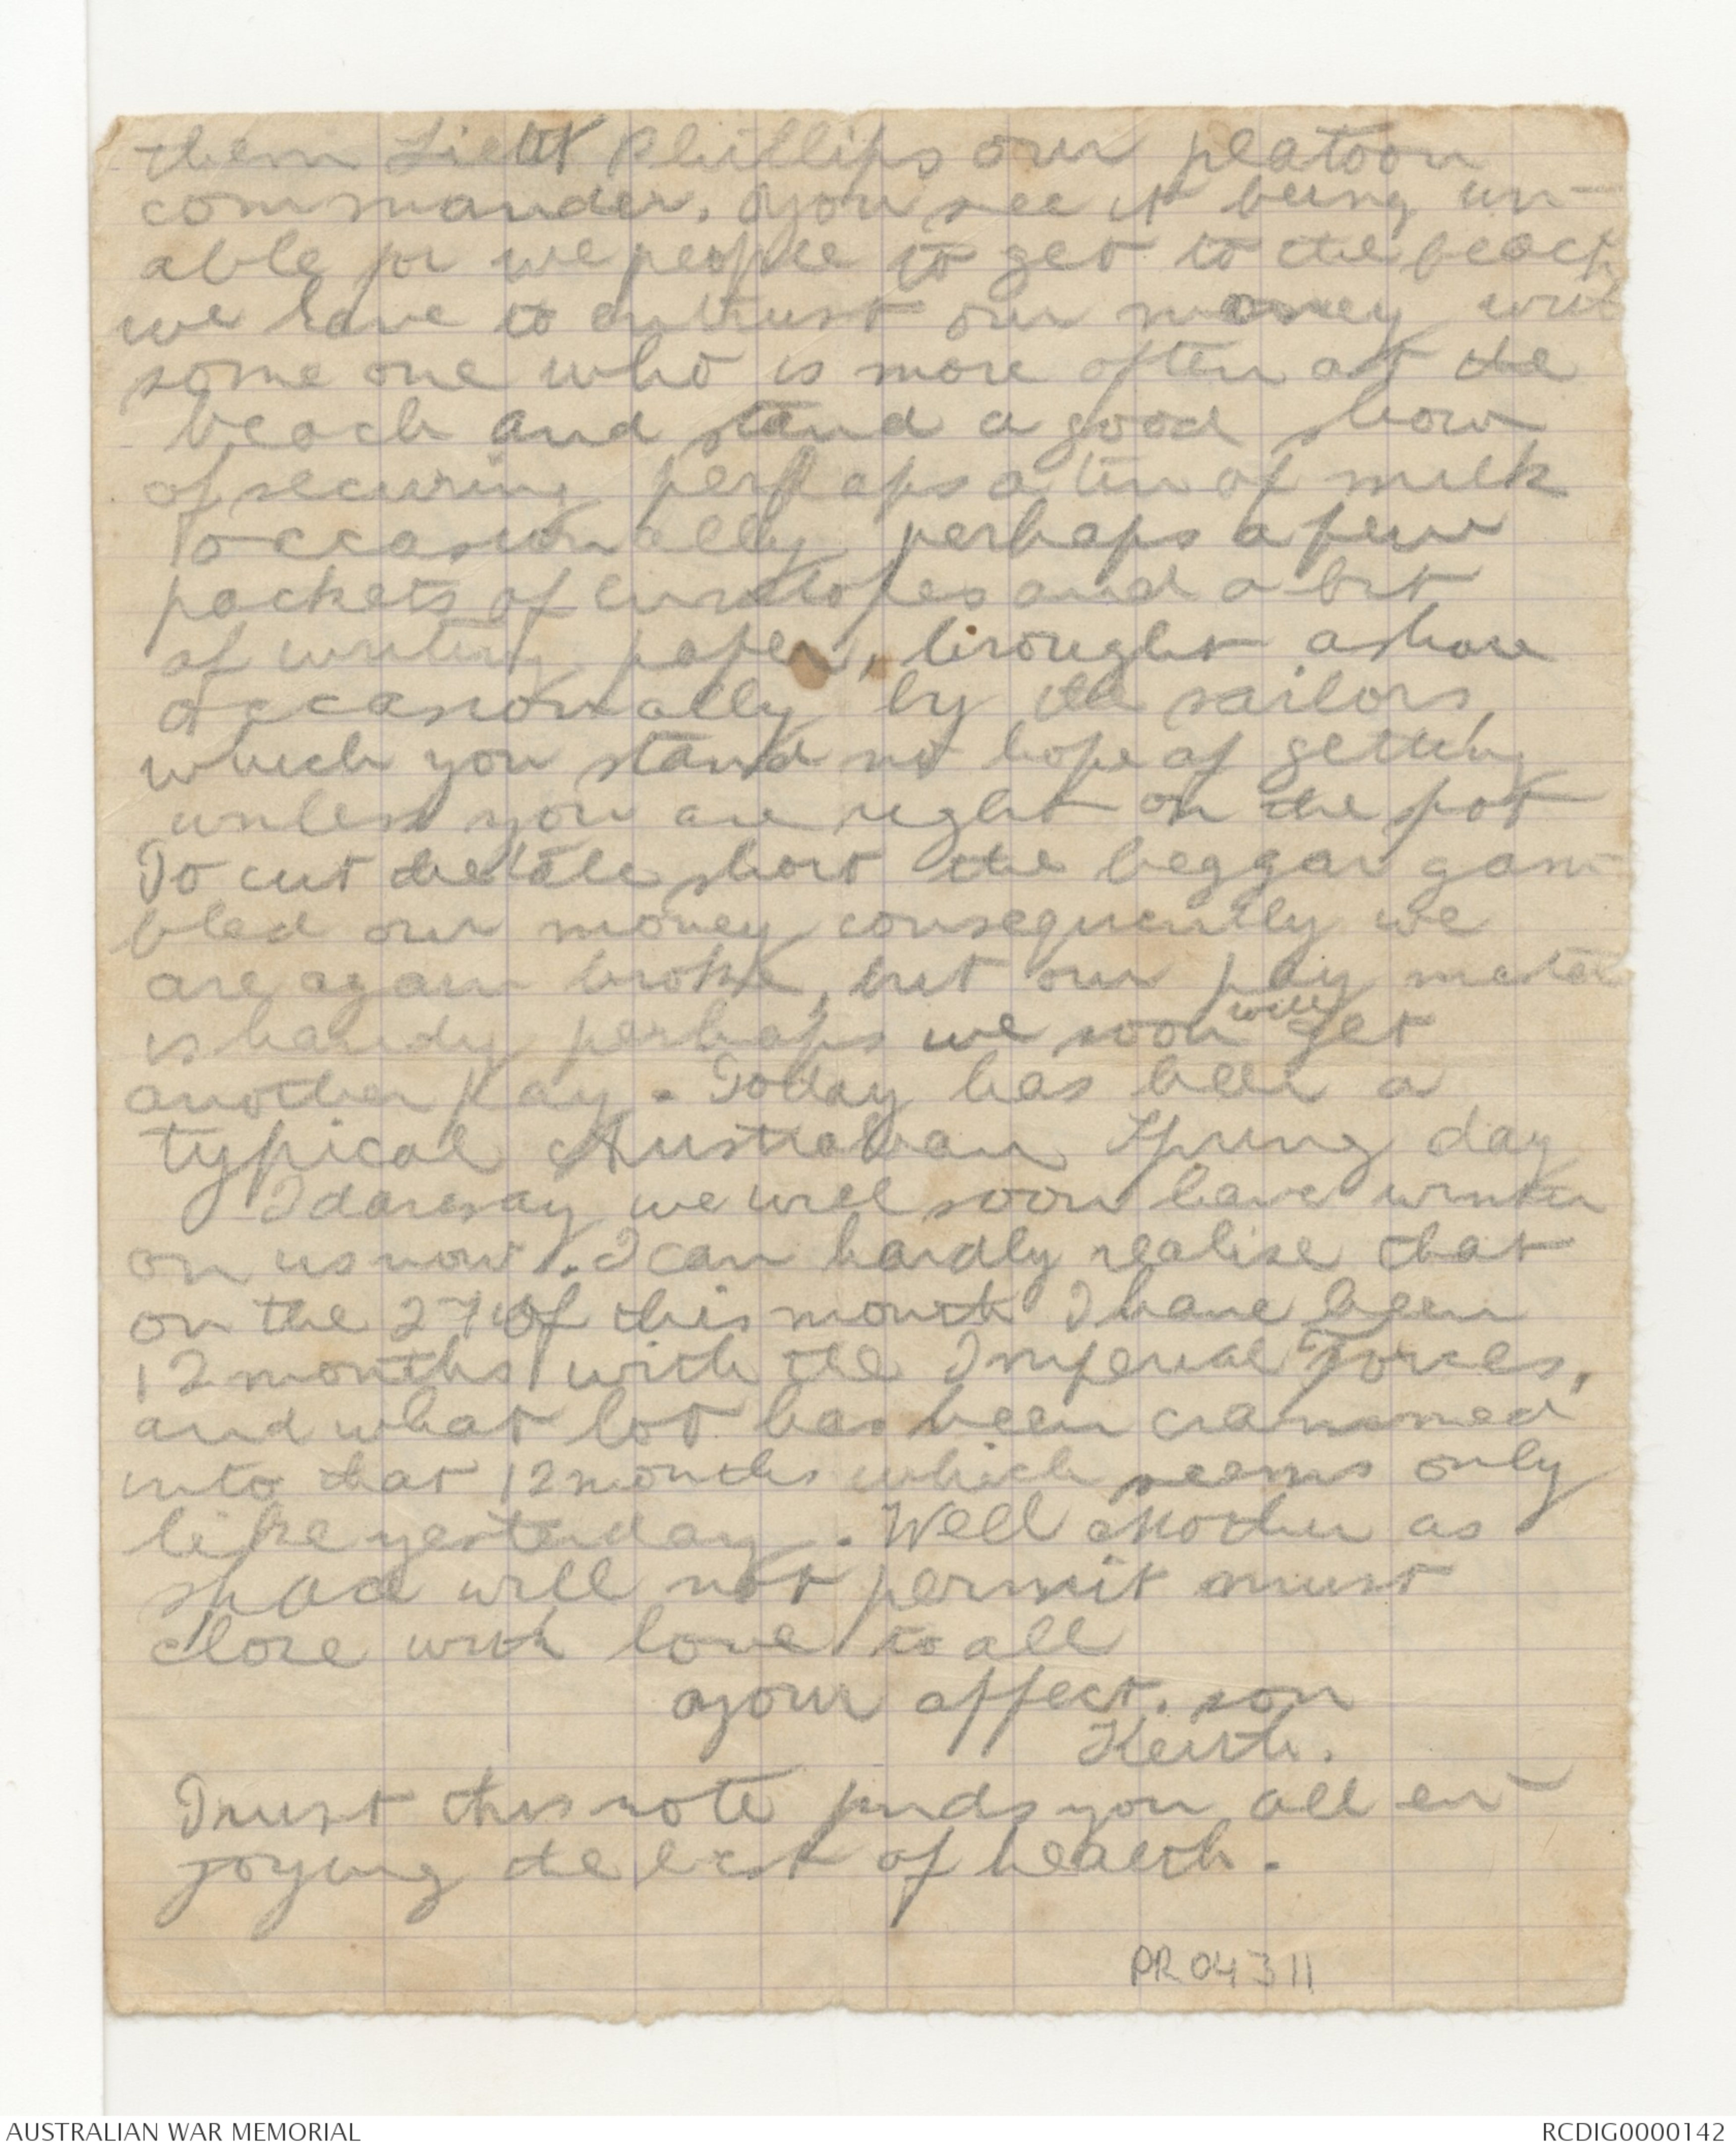 them Lieut Phillips our platoon
commander. You see it being un-
able for we people to get to the beach
we have to entrust our money with
some one who is more often at the
beach and stand a good show
of securing perhaps a tin of milk
occasionally perhaps a few
packets of envelopes and a bit
of writing paper, brought ashore
occasionally by the sailors,
which you stand no hope of getting
unless you are right on the spot
To cut the tale short the beggar gam-
bled our money consequently we
are again broke, but our pay
is handy perhaps we soon will get
another pay. Today has been a
typical Australian Spring day
I daresay we will soon have winter
on us now. I can hardly realise that
on the 27 of this month I have been
12 months with the Imperial Forces,
and what lot has been crammed
into that 12 months which seems only
like yesterday. Well Mother as
space will not permit must
close with love to all
Your affect. son
Keith.
Trust this note finds you all en-
joying the best of health.
PR 04311
AUSTRALIAN WAR MEMORIAL
RCDIG0000142